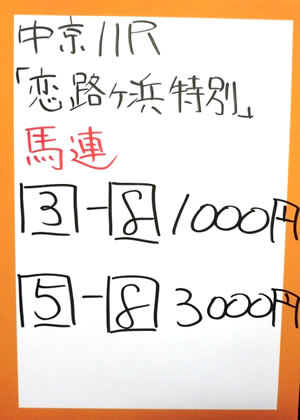 中京11R
「恋路ヶ浜特別」
馬連
3-8 1000円
5-8 3000円